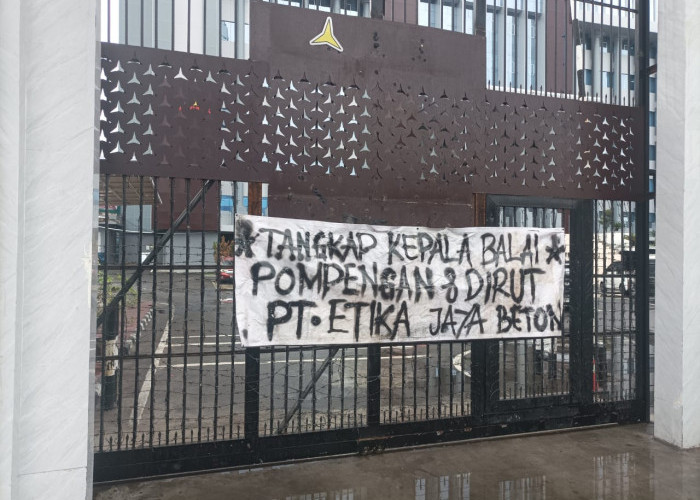 * TANGKAP KEPALA BALAI *
POMPENGAN & DIRUT
PT. ETIKA JAYA BETON